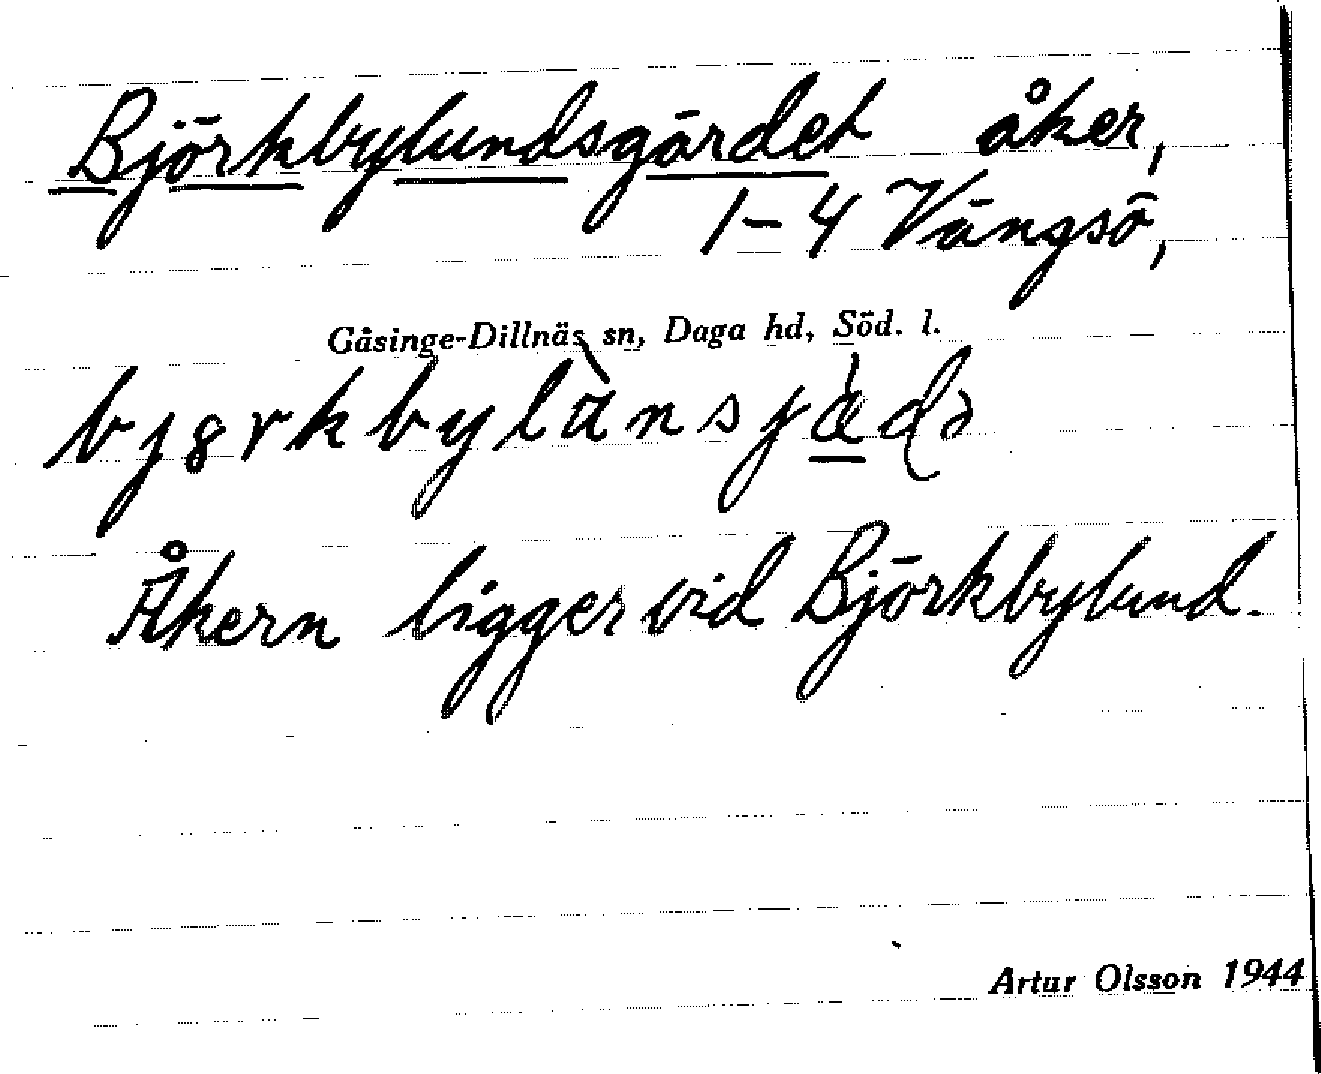 Björkbylundsgärdet åker,
1-4 Vängsö,
Gåsinge-Dillnäs sn, Daga hd, Söd. l.
Åkern ligger vid Björkbylund.
Artur Olsson 1944